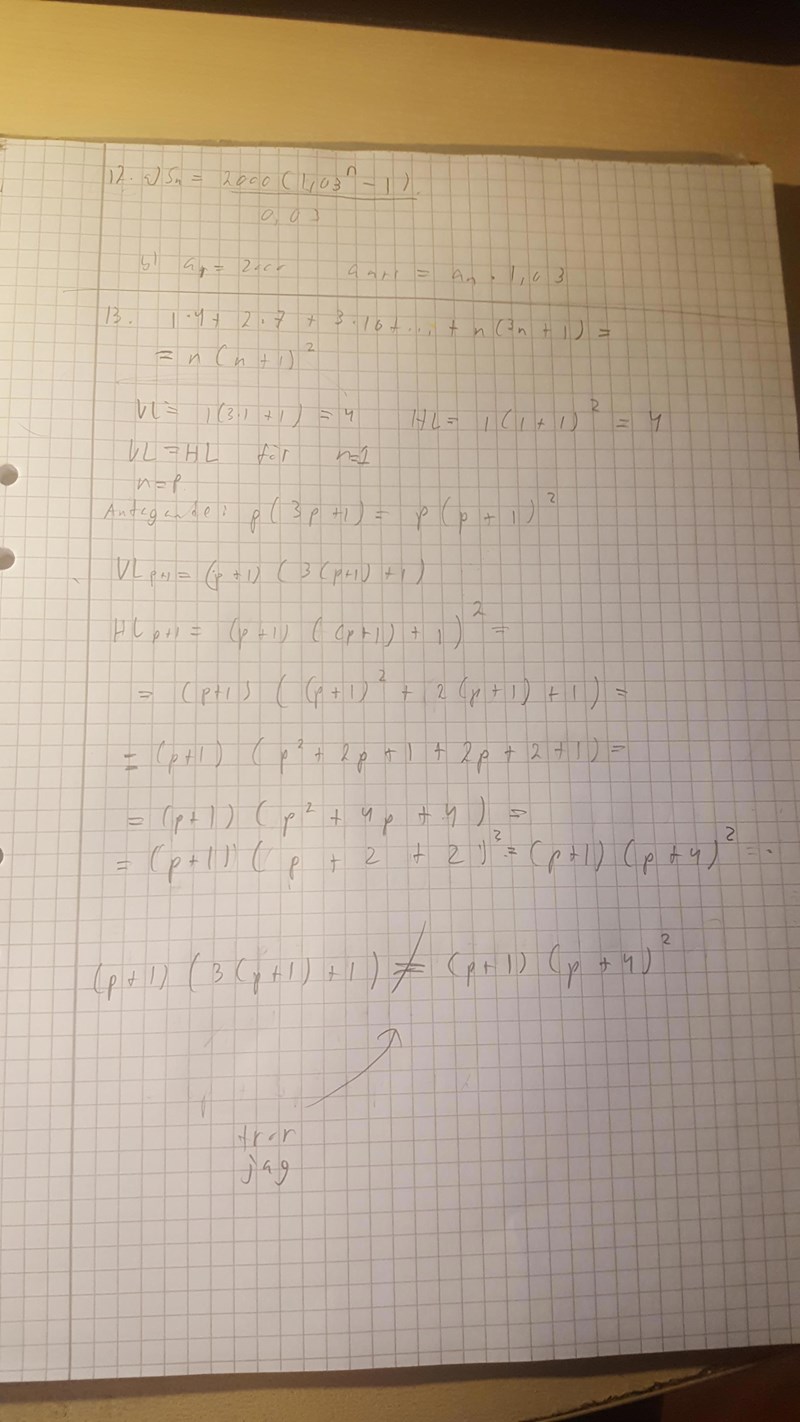 12. a) Sn = 2000 (1,03^n - 1)
0,03
b) a₁ = 2000 an+1 = an · 1,03
13. 1·4 + 2·7 + 3·10 + ... + n(3n + 1) =
= n(n+1)²
VL = 1(3·1 + 1) = 4 HL = 1(1+1)² = 4
VL = HL för n=1
n=p
Antagande: p(3p+1) = p(p+1)²
VLp+1 = (p+1) (3(p+1)+1)
HLp+1 = (p+1) ((p+1) + 1)² =
= (p+1) ((p+1)² + 2(p+1) + 1) =
= (p+1) (p² + 2p + 1 + 2p + 2 + 1) =
= (p+1) (p² + 4p + 4) =
= (p+1) (p + 2 + 2)² = (p+1) (p+4)² =
(p+1) (3(p+1)+1) ≠ (p+1) (p+4)²
tror
jag